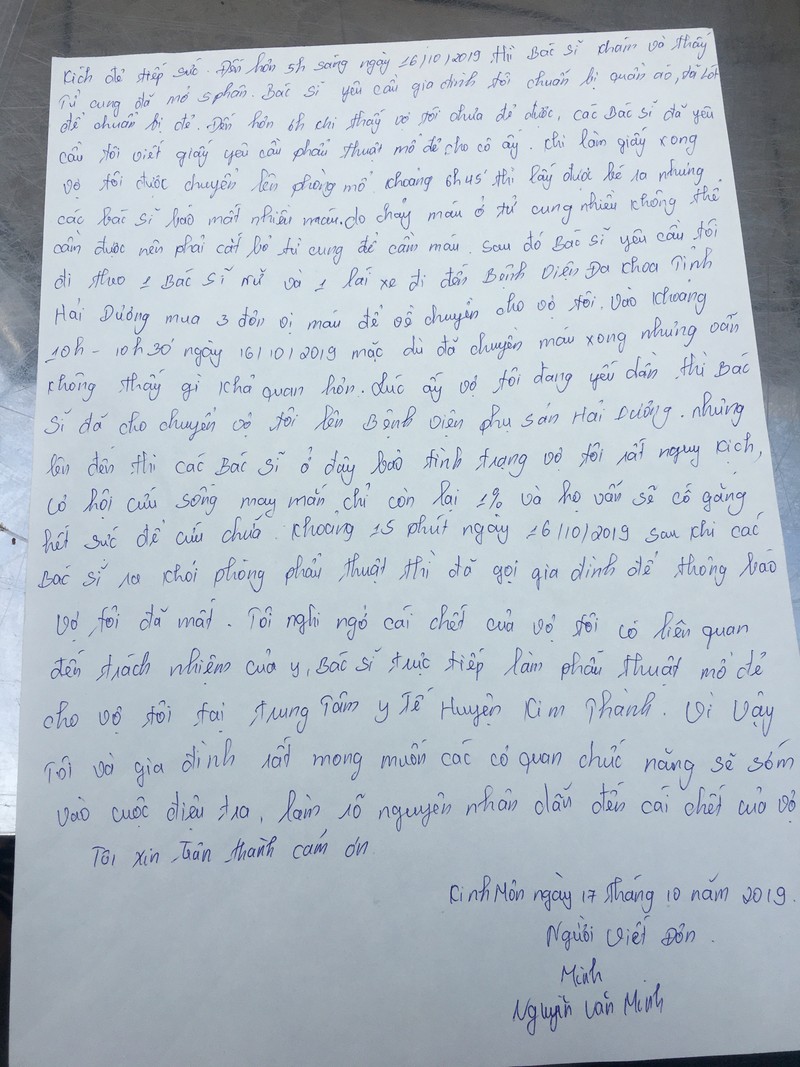 kích đẻ tiếp sức. Đến hơn 5h sáng ngày 16/10/2019 thì Bác sĩ khám và thấy
Tử cung đã mở 5 phân. Bác sĩ yêu cầu gia đình tôi chuẩn bị quần áo, tã lót
để chuẩn bị đẻ. Đến hơn 6h chi thấy vợ tôi chưa đẻ được, các Bác sĩ đã yêu
cầu tôi viết giấy yêu cầu phẫu thuật mổ đẻ cho cô ấy. khi làm giấy xong
vợ tôi được chuyển lên phòng mổ khoảng 6h45' thì lấy được bé ra nhưng
các bác sĩ báo mất nhiều máu. do chảy máu ở tử cung nhiều không thể
cầm được nên phải cắt bỏ tử cung để cầm máu. sau đó Bác sĩ yêu cầu tôi
đi theo 1 Bác sĩ Nữ và 1 lái xe đi đến Bệnh Viện Đa khoa Tỉnh
Hải Dương mua 3 đơn vị máu để về chuyền cho vợ tôi. Vào khoảng
10h - 10h30' ngày 16/10/2019 mặc dù đã chuyền máu xong nhưng vẫn
không thấy gì khả quan hơn. Lúc ấy vợ tôi đang yếu dần thì Bác
sĩ đã cho chuyển vợ tôi lên Bệnh viện phụ sản Hải Dương. nhưng
lên đến thì các Bác sĩ ở đây bảo tình trạng vợ tôi rất nguy kịch,
cơ hội cứu sống may mắn chỉ còn lại 1% và họ vẫn sẽ cố gắng
hết sức để cứu chữa. khoảng 15 phút ngày 16/10/2019 sau khi các
Bác sĩ ra khỏi phòng phẫu thuật thì đã gọi gia đình để thông báo
vợ tôi đã mất. Tôi nghi ngờ cái chết của vợ tôi có liên quan
đến trách nhiệm của y, Bác sĩ trực tiếp làm phẫu thuật mổ đẻ
cho vợ tôi tại trung Tâm y Tế Huyện Kim Thành. Vì Vậy
Tôi và gia đình rất mong muốn các cơ quan chức năng sẽ sớm
vào cuộc điều tra, làm rõ nguyên nhân dẫn đến cái chết của vợ
Tôi xin trân thành cảm ơn
Kinh Môn ngày 17 tháng 10 năm 2019.
Người Viết Đơn.
Minh
Nguyễn Văn Minh